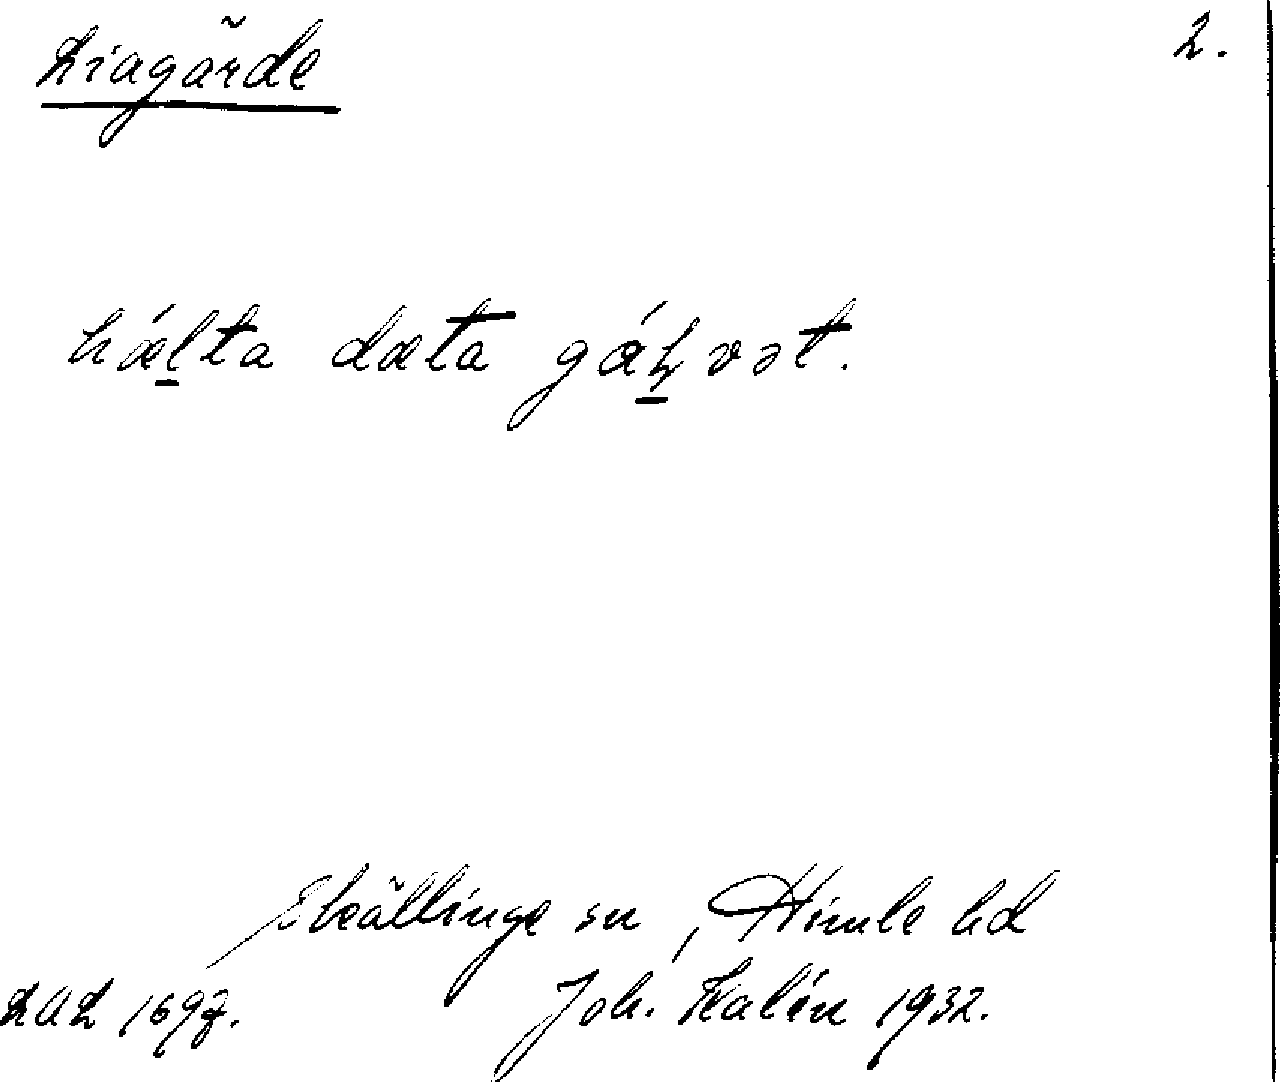 Liagärde 2.
hæl̲ta dæta gáḻvət.
Skällinge sn, Himle hd
LUL 1697. Joh. Kalén 1932.